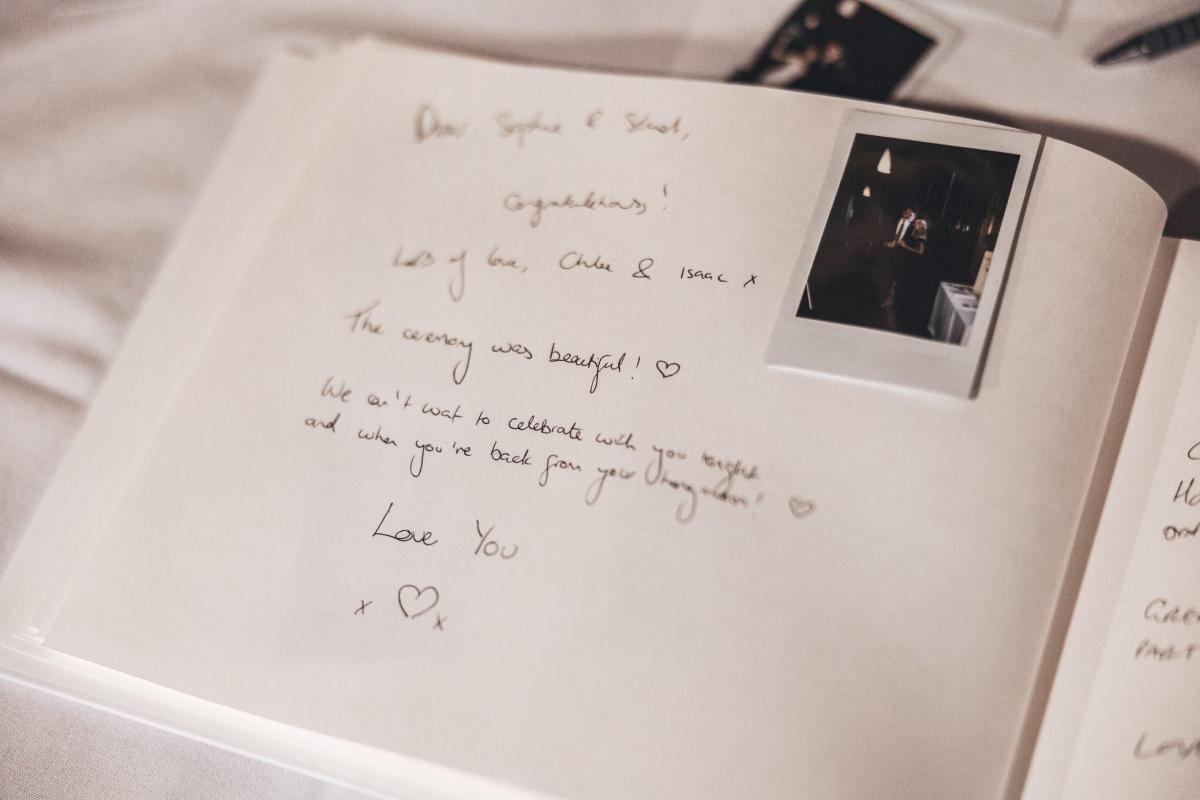 Dear Sophie & Stuart,
Congratulations!
Lots of love, Chloe & Isaac x
The ceremony was beautiful! ♡
We can't wait to celebrate with you tonight
and when you're back from your honeymoon! ♡
Love You
x ♡ x